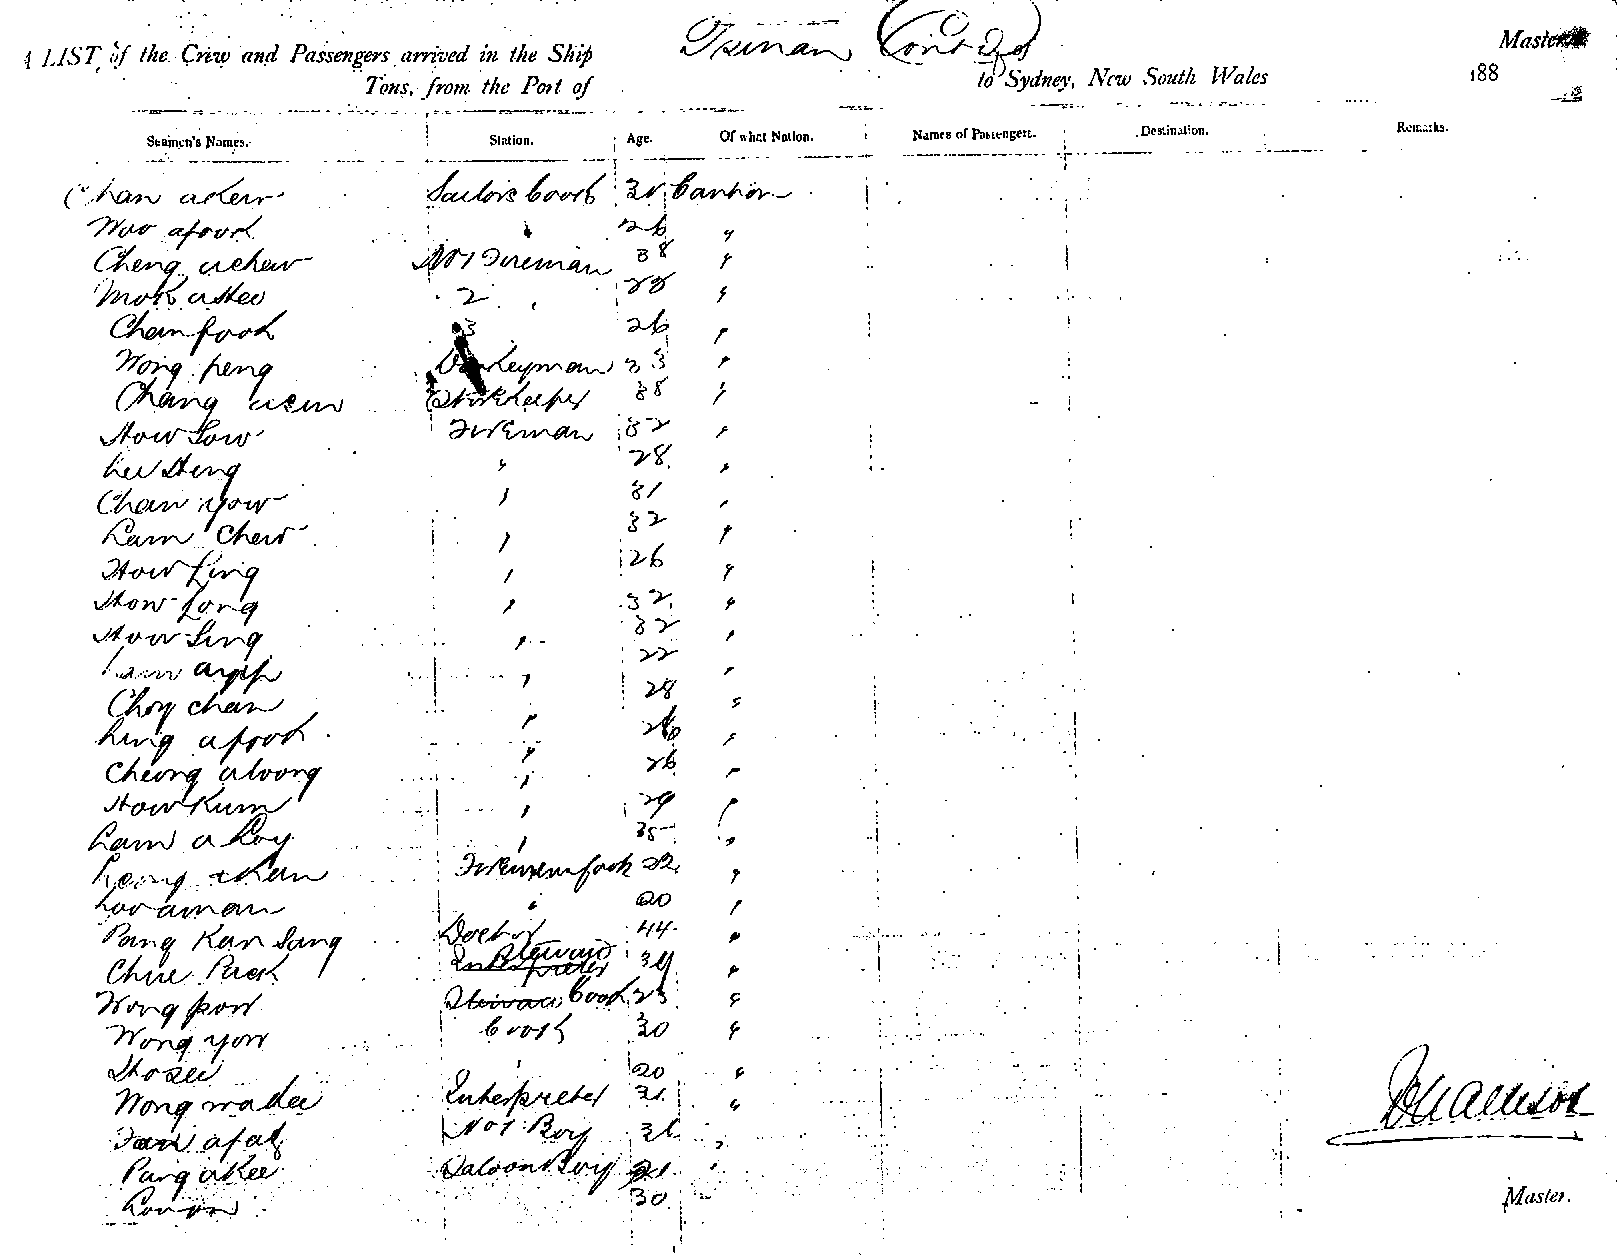 A LIST of the Crew and Passengers arrived in the Ship Tsinan Contd Master
Tons, from the Port of to Sydney, New South Wales 188
Seamen's Names. Station. Age. Of what Nation. Names of Passengers. Destination. Remarks.
Chan Sailors Cook Canton
Woo afook " 26 "
Cheng achew No 1 Fireman 38 "
Mok 2 " "
Chan fook 3 26 "
Wong peng Donkeyman 33 "
Chang Storekeeper 38 "
How Sow Fireman 32 "
Lee Heng " 28 "
Chan yow " 31 "
Lam Chew " 32 "
How Ling " 26 "
How Long " 32 "
How Sing " 32 "
Lam " 22 "
Choy chan " 28 "
Ling afook " 26 "
Cheong aloong " 26 "
How Kum " 29 "
Lam a Loy " 35 "
Leong Firemens Cook 22 "
Loo aman " 20 "
Pang Kan Sang Doctor 44 "
Chue Pack Interpreter Steward 34 "
Wong pow Steward Cook 23 "
Wong yow Cook 30 "
Ho see " 20 "
Wong Interpreter "
afat No 1 Boy "
Pang akee Saloon Boy "
30
Master.